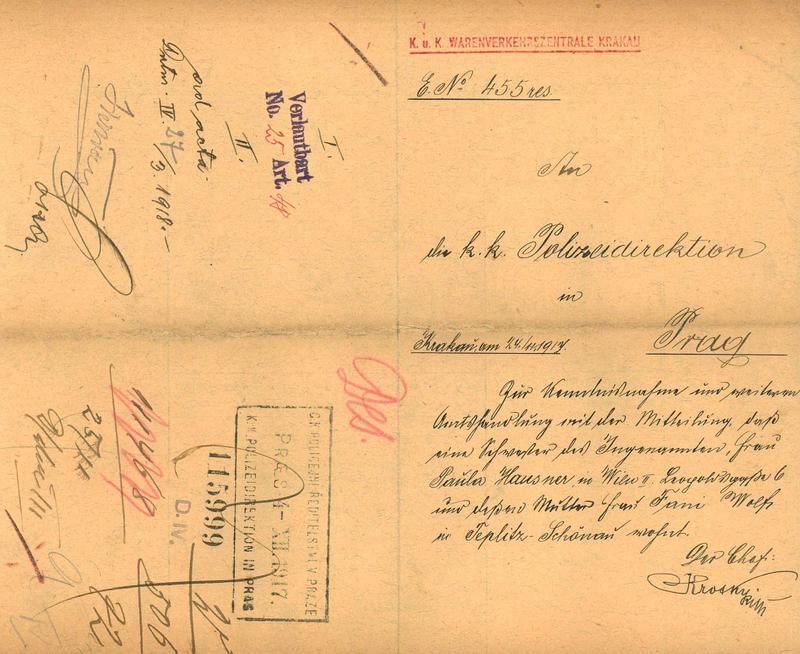 K. u. K. WARENVERKEHRSZENTRALE KRAKAU
E. No 455 res.
An
die k. k. Polizeidirektion
in
Prag
Krakau, am 24./11. 1917.
Zur Kenntnisnahme und weiteren
Amtshandlung mit der Mitteilung, daß
eine Schwester des Ingenannten, Frau
Paula Hausner in Wien II. Leopoldsgaße 6
und deßen Mutter Frau Fani Wolf
in Teplitz-Schönau wohnt.
Der Chef:
I.
Verlautbart
No. 25 Art. 48
II.
ad acta.
27/3. 1918.
Res.
C.K. POLICEJNÍ ŘEDITELSTVÍ V PRAZE
PRÆS 4-XII.1917.
K.K. POLIZEIDIREKTION IN PRAG
115999
D. IV.